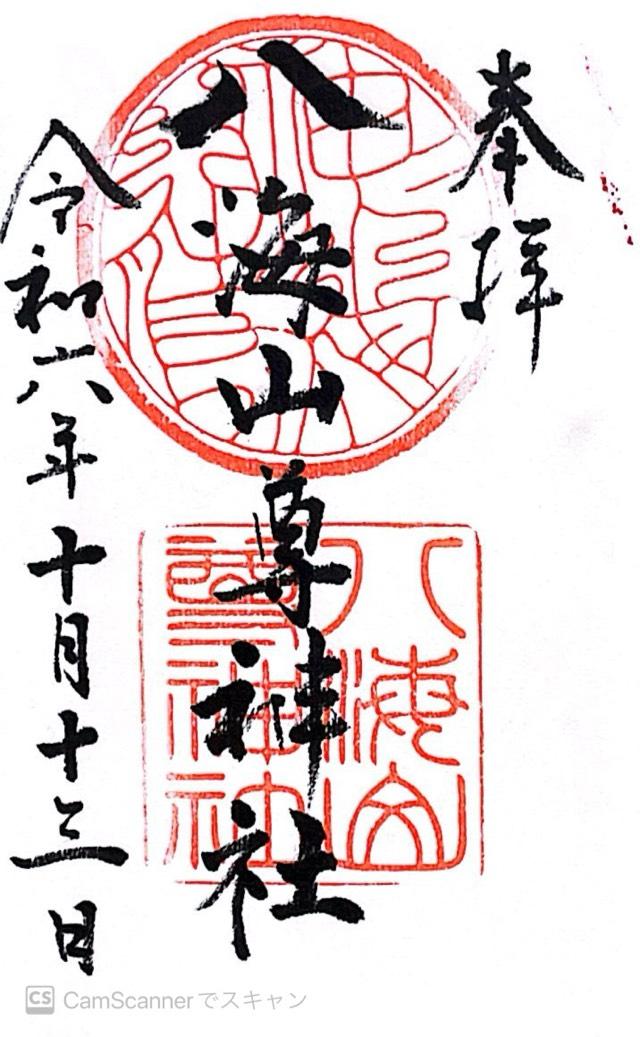 奉拝
八海山尊神社
令和六年十月十三日
八海山
尊神社
CS CamScannerでスキャン